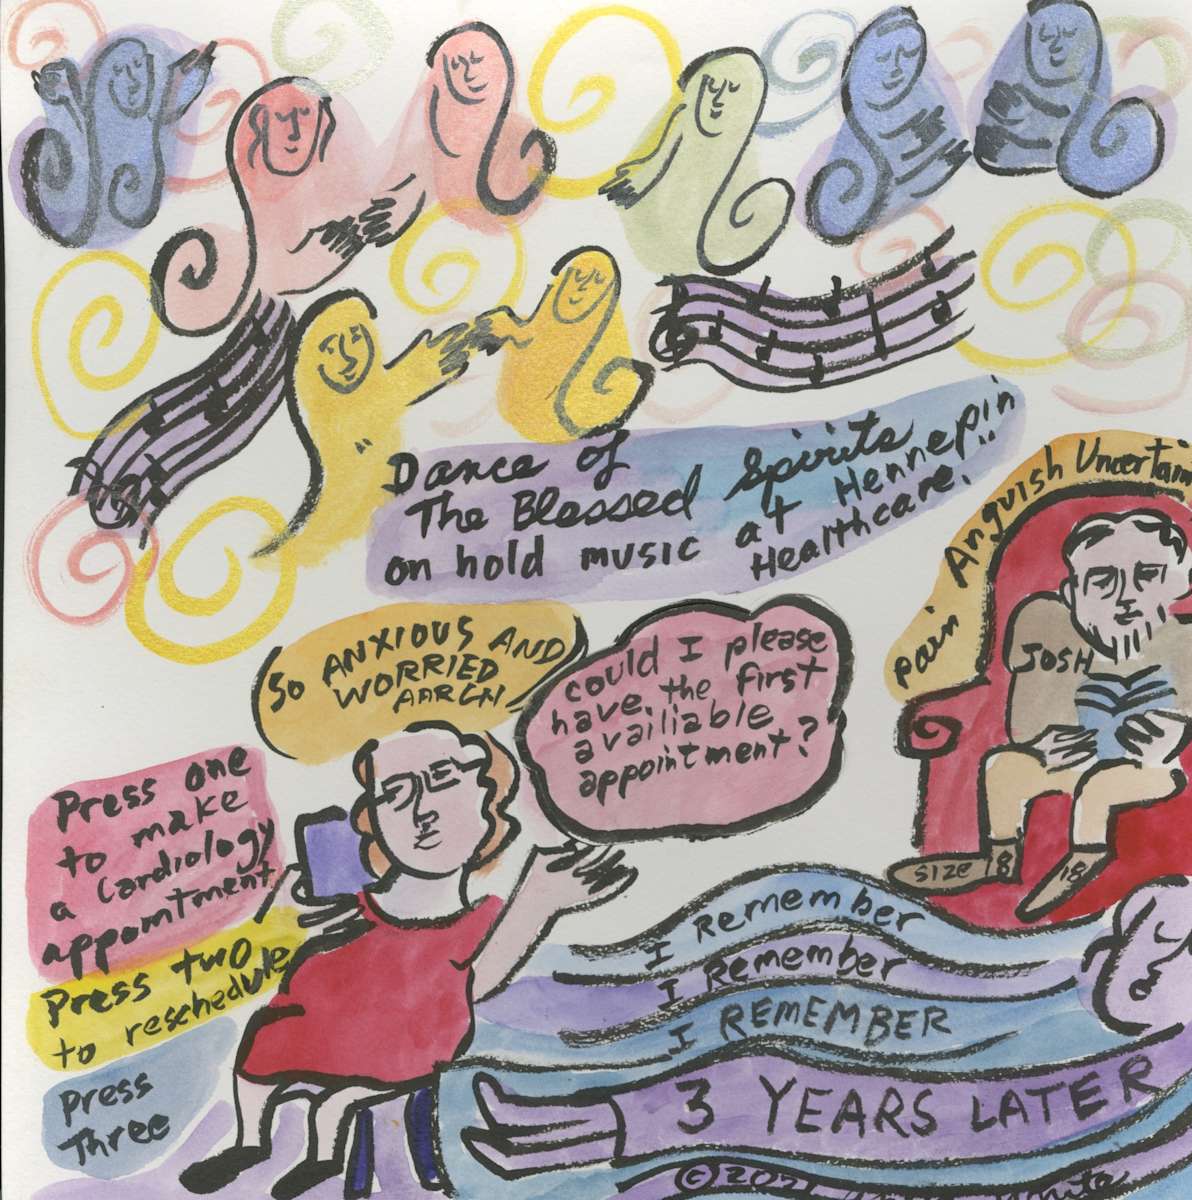 Dance of
The Blessed Spirits
on hold music at Hennepin
Healthcare.
pain Anguish Uncertain
JOSH
SIZE 18
18
So ANXIOUS AND
WORRIED
AARGH
could I please
have the first
availiable
appointment?
Press one
to make
a Cardiology
appointment
Press two
to reschedule
press
Three
I Remember
I Remember
I REMEMBER
3 YEARS LATER